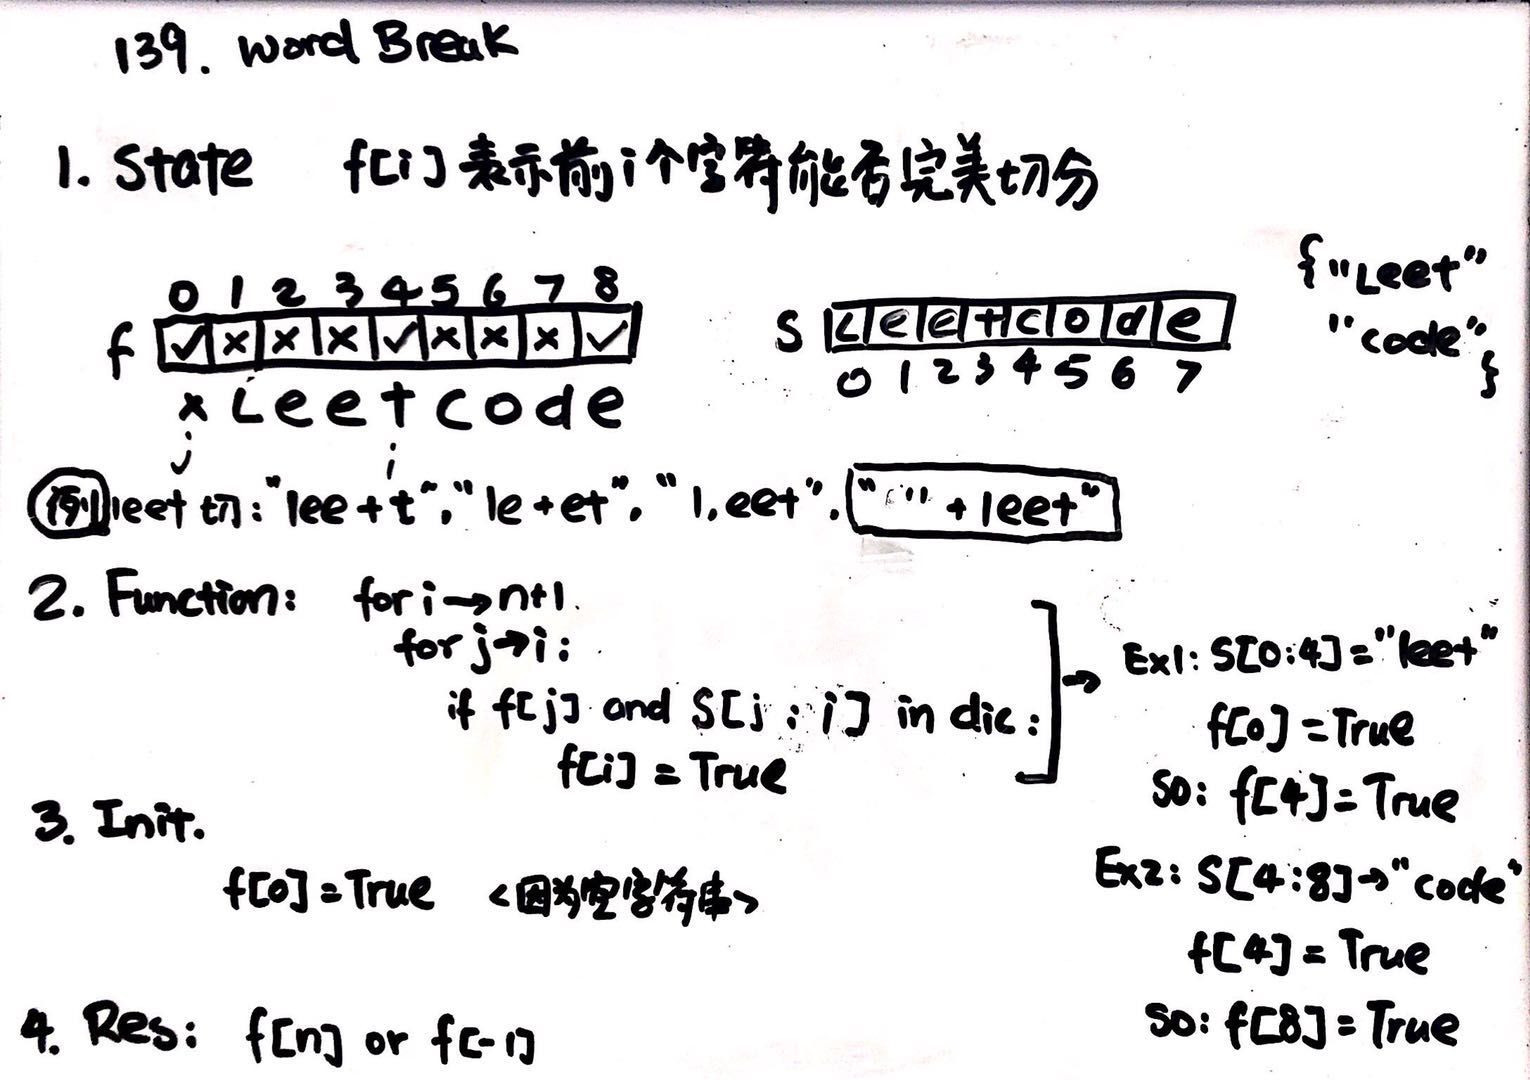 139. Word Break
1. State f[i]表示前i个字符能否完美切分
0 1 2 3 4 5 6 7 8
f ✓ x x x ✓ x x x ✓
x L e e t c o d e
j i
S L e e t c o d e
0 1 2 3 4 5 6 7
{"Leet"
"code"}
例 leet 切: "lee+t", "le+et", "l,eet", " "" + leet"
2. Function: for i→n+1.
for j→i:
if f[j] and S[j:i] in dic:
f[i] = True
→
Ex1: S[0:4]="leet"
f[0]=True
So: f[4]=True
Ex2: S[4:8]→"code"
f[4]=True
So: f[8]=True
3. Init.
f[0]=True <因为空字符串>
4. Res: f[n] or f[-1]